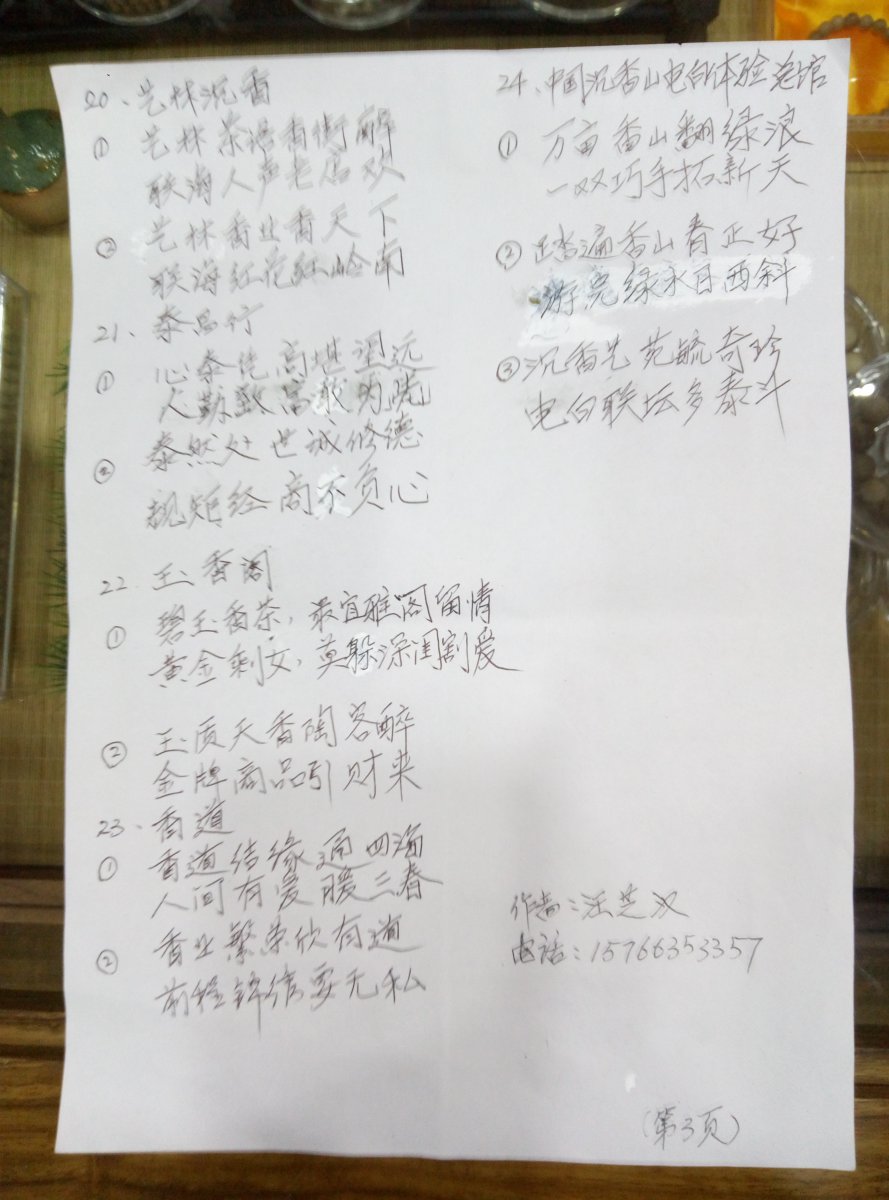 20、艺林沉香
① 艺林茶语香街醉
联海人声老店欢
② 艺林香业香天下
联海红花红岭南
21、泰昌行
① 心泰凭高堪望远
人勤致富敢为先
② 泰然处世诚修德
规矩经商不负心
22、玉香阁
① 碧玉香茶，最宜雅阁留情
黄金剩女，莫躲深闺割爱
② 玉质天香陶客醉
金牌商品引财来
23、香道
① 香道结缘通四海
人间有爱暖三春
② 香业繁荣欣有道
前程锦绣要无私
24、中国沉香山电白体验总馆
① 万亩香山翻绿浪
一双巧手拓新天
② 踏遍香山春正好
游完绿水日西斜
③ 沉香艺苑毓奇珍
电白联坛多泰斗
作者：汪芝汉
电话：15766353357
（第3页）